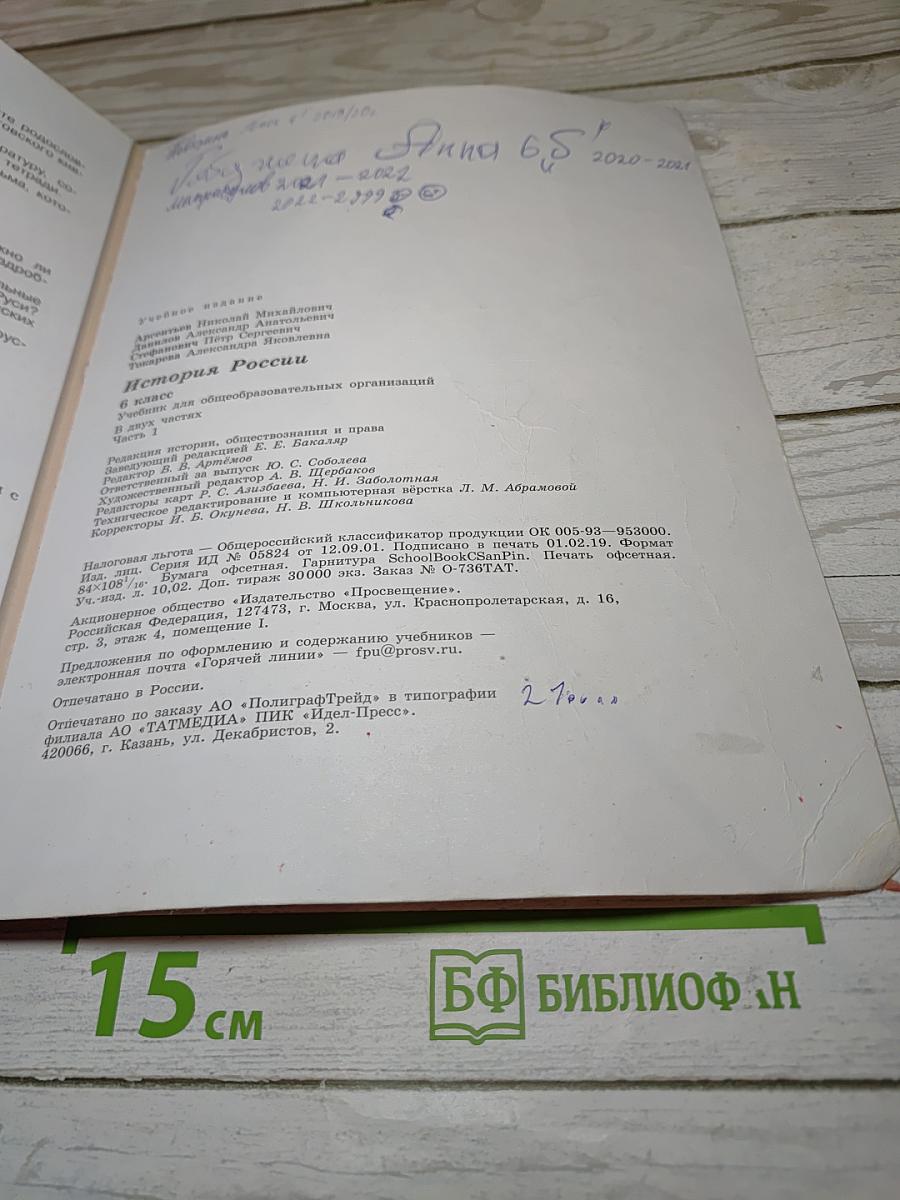 те родослов-
товского кня-
ратуру, со-
тетради
ьма, кото-
жно ли
адроб-
льные
Руси?
ских
рус-
и с
2019/20
Анна 6 Б 2020-2021
2021-2022
2022-2999
Учебное издание
Арсентьев Николай Михайлович
Данилов Александр Анатольевич
Стефанович Пётр Сергеевич
Токарева Александра Яковлевна
История России
6 класс
Учебник для общеобразовательных организаций
В двух частях
Часть 1
Редакция истории, обществознания и права
Заведующий редакцией Е. Е. Бакаляр
Редактор В. В. Артёмов
Ответственный за выпуск Ю. С. Соболева
Художественный редактор А. В. Щербаков
Редакторы карт Р. С. Азизбаева, Н. И. Заболотная
Техническое редактирование и компьютерная вёрстка Л. М. Абрамовой
Корректоры И. Б. Окунева, Н. В. Школьникова
Налоговая льгота — Общероссийский классификатор продукции ОК 005-93—953000.
Изд. лиц. Серия ИД № 05824 от 12.09.01. Подписано в печать 01.02.19. Формат
84×108 1/16. Бумага офсетная. Гарнитура SchoolBookCSanPin. Печать офсетная.
Уч.-изд. л. 10,02. Доп. тираж 30 000 экз. Заказ № О-736ТАТ.
Акционерное общество «Издательство «Просвещение».
Российская Федерация, 127473, г. Москва, ул. Краснопролетарская, д. 16,
стр. 3, этаж 4, помещение I.
Предложения по оформлению и содержанию учебников —
электронная почта «Горячей линии» — fpu@prosv.ru.
Отпечатано в России.
Отпечатано по заказу АО «ПолиграфТрейд» в типографии
филиала АО «ТАТМЕДИА» ПИК «Идел-Пресс».
420066, г. Казань, ул. Декабристов, 2.
21
15 см
БФ БИБЛИОФ Н